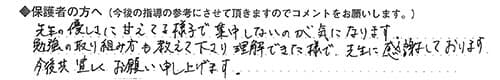 ◆保護者の方へ（今後の指導の参考にさせて頂きますのでコメントをお願いします。）
先生の優しさに甘えてる様子で集中しないのが気になります。
勉強の取り組み方も教えて下さり理解できた様で、先生に感謝しております。
今後共宜しくお願い申し上げます。